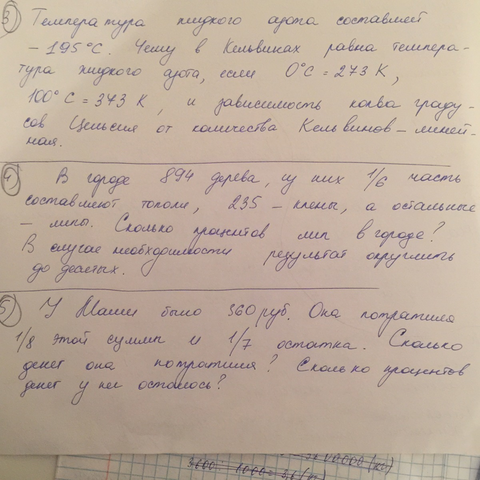 3) Температура жидкого азота составляет
– 195°С. Чему в Кельвинах равна темпера-
тура жидкого азота, если 0°С = 273 К,
100°С = 373 К, и зависимость колва граду-
сов Цельсия от количества Кельвинов – линей-
ная.
4) В городе 894 дерева, из них 1/6 часть
составляют тополи, 235 – клены, а остальные
– липы. Сколько процентов лип в городе?
В случае необходимости результат округлить
до десятых.
5) У Маши было 560 руб. Она потратила
1/8 этой суммы и 1/7 остатка. Сколько
денег она потратила? Сколько процентов
денег у нее осталось?